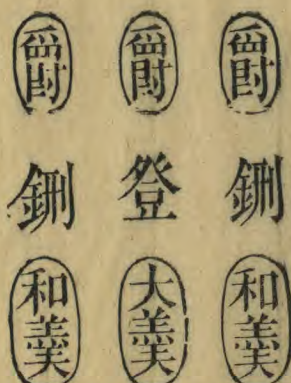 爵鉶和羹
爵登大羹
爵鉶和羹